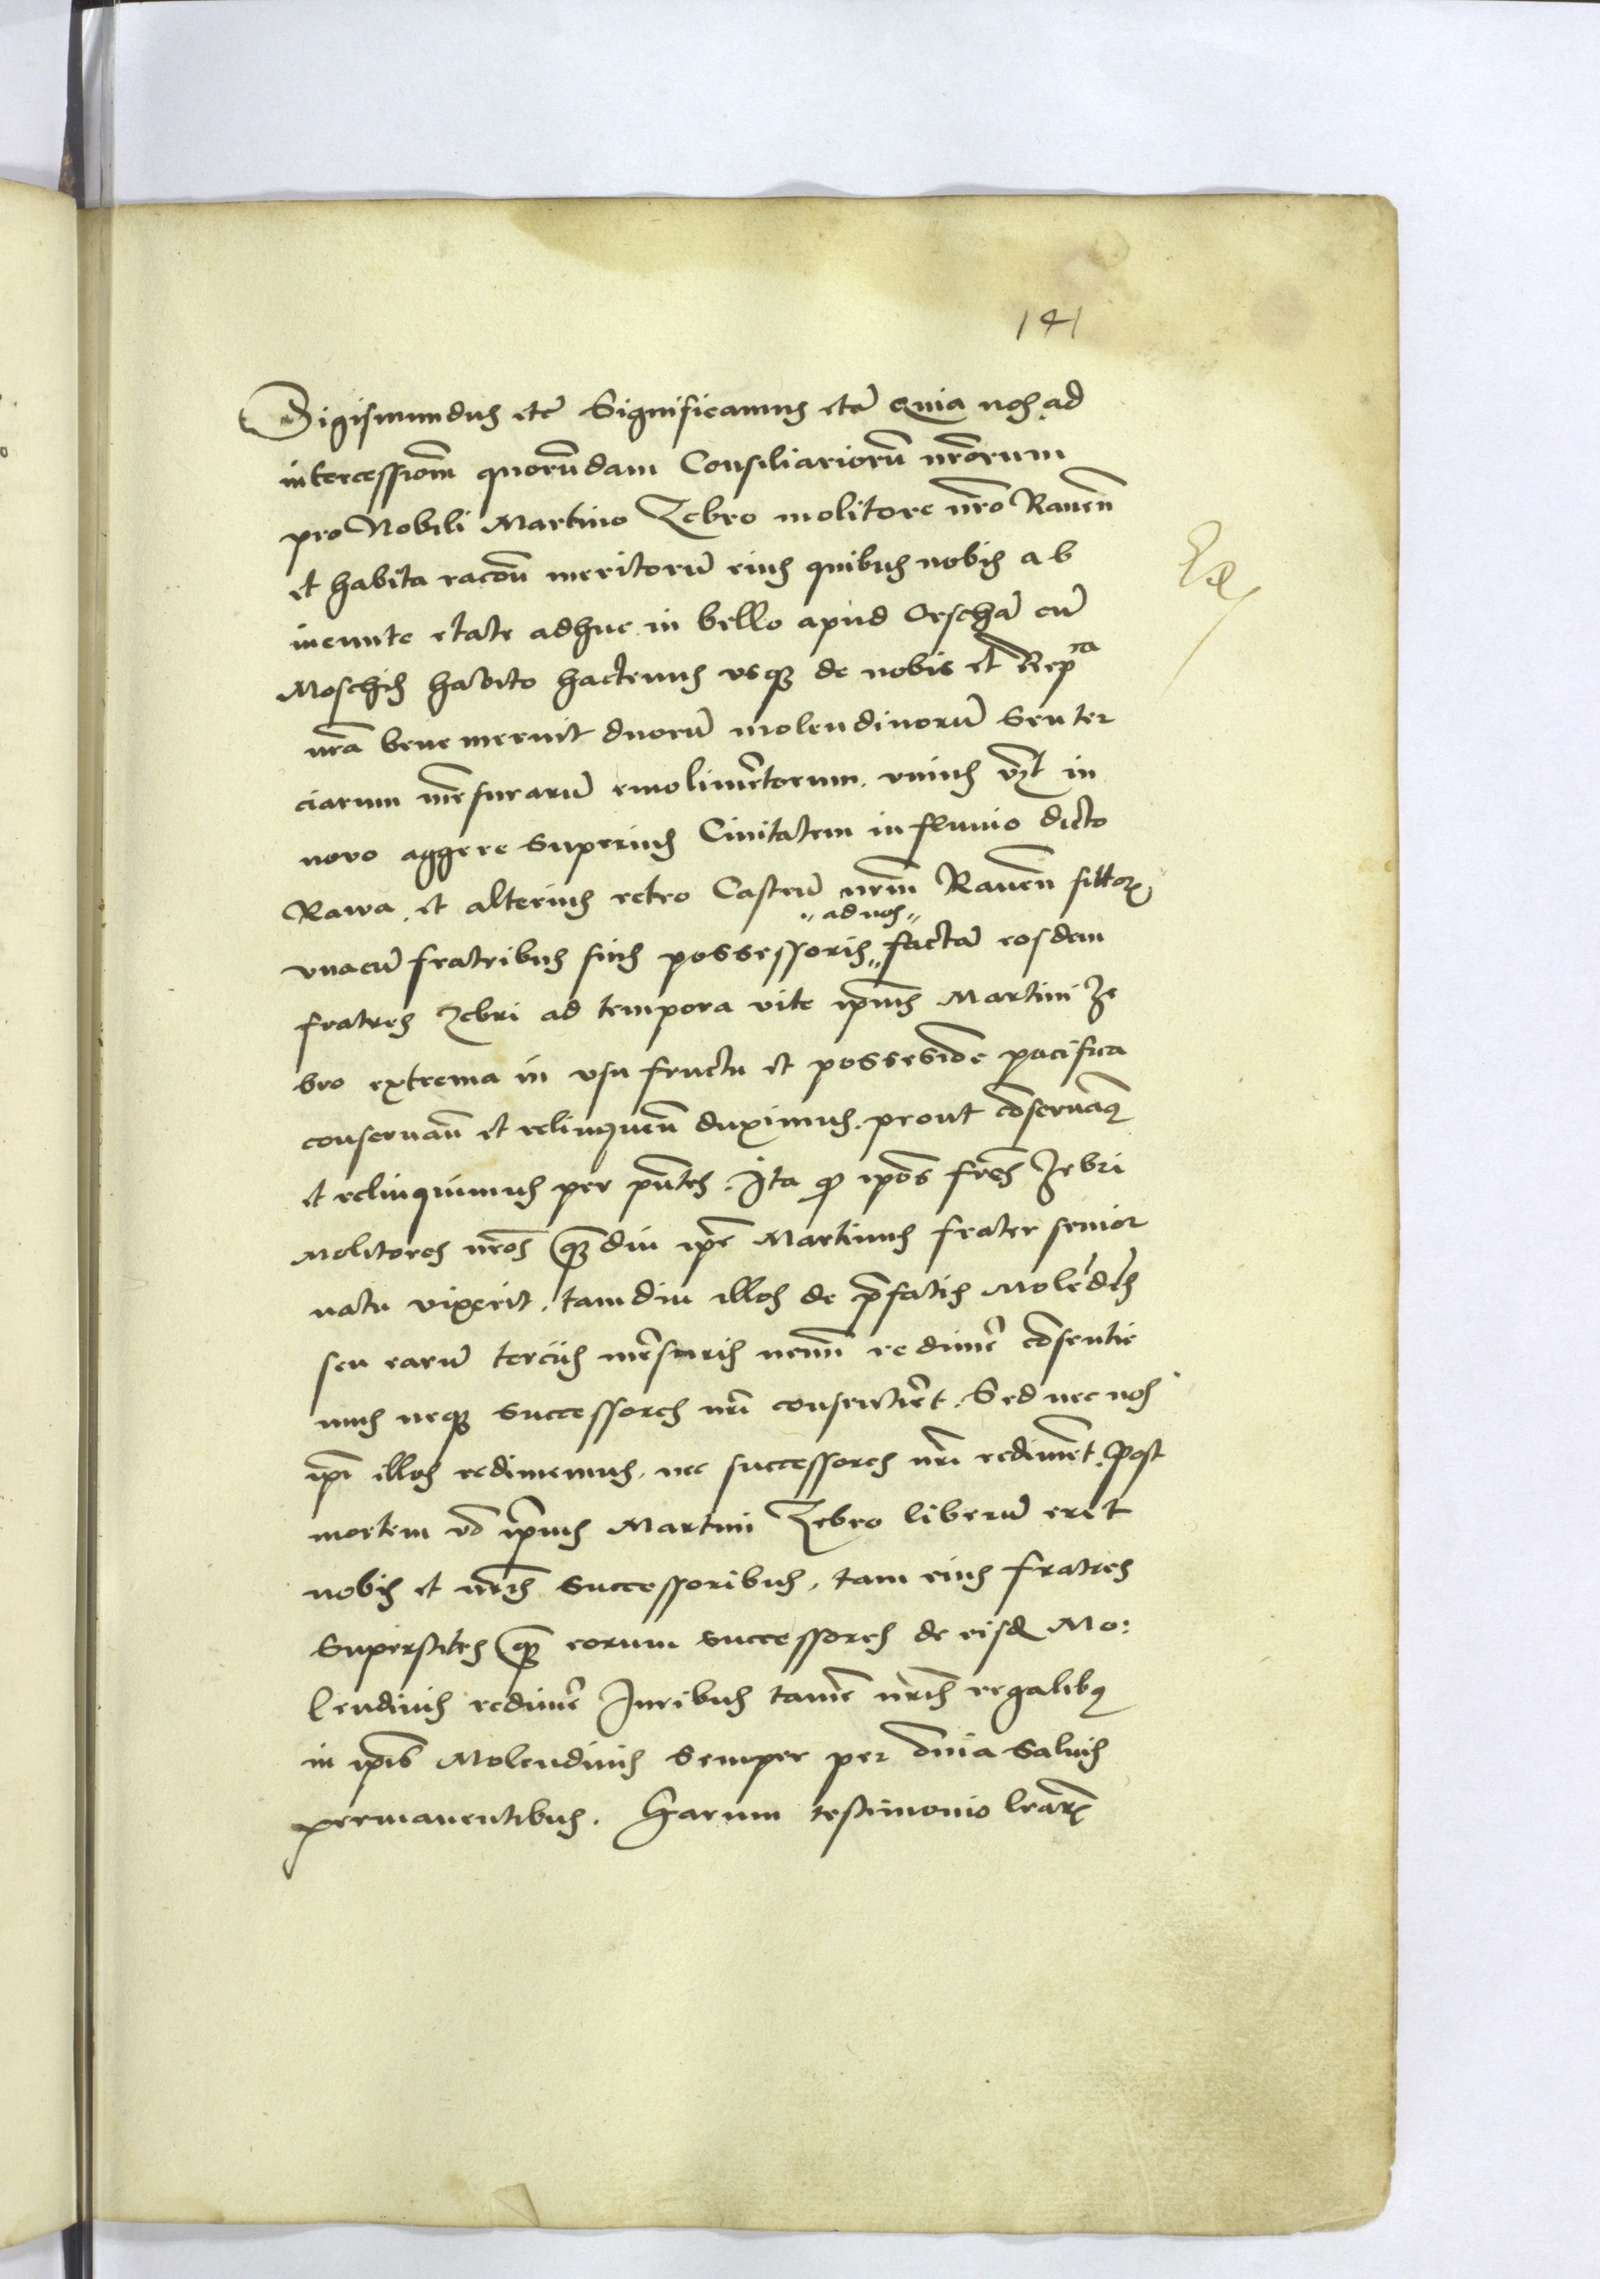 141
Sigismundus etc̄ Significamus etc̄ Quia nos ad
intercessiom̄ quorūdam Consiliariorū nr̄orum
pro Nobili Martino Zebro molitore nr̄o Raueñ
et habita racōn meritorū eius quibus nobis ab
ineunte etate adhuc in bello apud Orschā cū
Moschis habito hactenus vsq̢ de nobis et Repca
nr̄a bene meruit duorū molendinorū seu ter
ciarum mēsurarū emolimētorum. vnius vz̄t in
novo aggere superius Ciuitatem in fluuio dicto
Rawa. et alterius retro Castrū nr̄m Raueñ sittor̨
"ad nos"
vnacū fratribus suis possessoris " factā eosdem
fratres Zebri ad tempora vite ip̄ius Martini Ze
bro extrema in vsu fructu et possessiōe pacifica
conseruañ et relinqueñ duximus. prout cōseruam9
et relinquimus per pn̄tes. Ita q ip̄os fr̄es Zebri
Molitores nr̄os q̄mdiu ip̄e Martinus frater senior
natu vixerit, tamdiu illos de p̄fatis Molēdis
seu earū terciis mēsuris nemī redimē cōsentie
mus neq̢ successores nr̄i consentiēt. Sed nec nos
ip̄i illos redimemus, nec successores nr̄i redimēt. Post
mortem v̄o ip̄ius Martini Zebro liberū erit
nobis et nr̄is successoribus, tam eius fratres
Superstites q̄m eorum successores de eisd̄ Mo:
lendinis redimē Iuribus tamē nr̄is regalib9
in ip̄is Molendinis semper per ōmia saluis
permanentibus. Harum testimonio lr̄ar̨